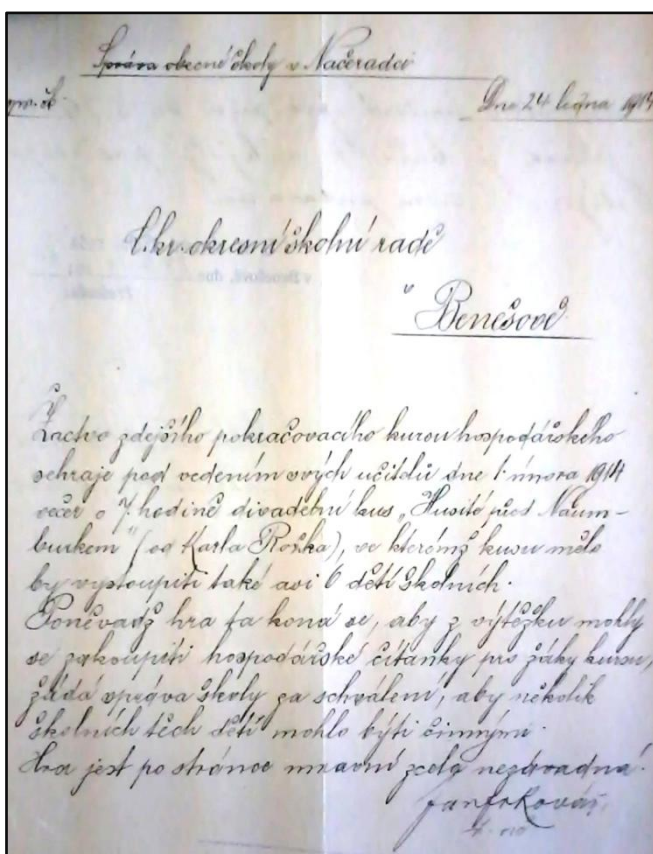 Správa obecné školy v Načeradci
Dne 24 ledna 1914
C. kr. okresní školní radě
v
Benešově
Žactvo zdejšího pokračovacího kursu hospodářského
sehraje pod vedením svých učitelů dne 1. února 1914
večer o 7. hodině divadelní kus „Husité před Naum-
burkem" (od Karla Roška), ve kterémž kusu mělo
by vystoupiti také asi 6 dětí školních.
Poněvadž hra ta koná se, aby z výtěžku mohly
se zakoupiti hospodářské čítanky pro žáky kursu,
žádá správa školy za schválení, aby několik
školních těch dětí mohlo býti činnými.
Hra jest po stránce mravní zcela nezávadná.
v Benešově, dne